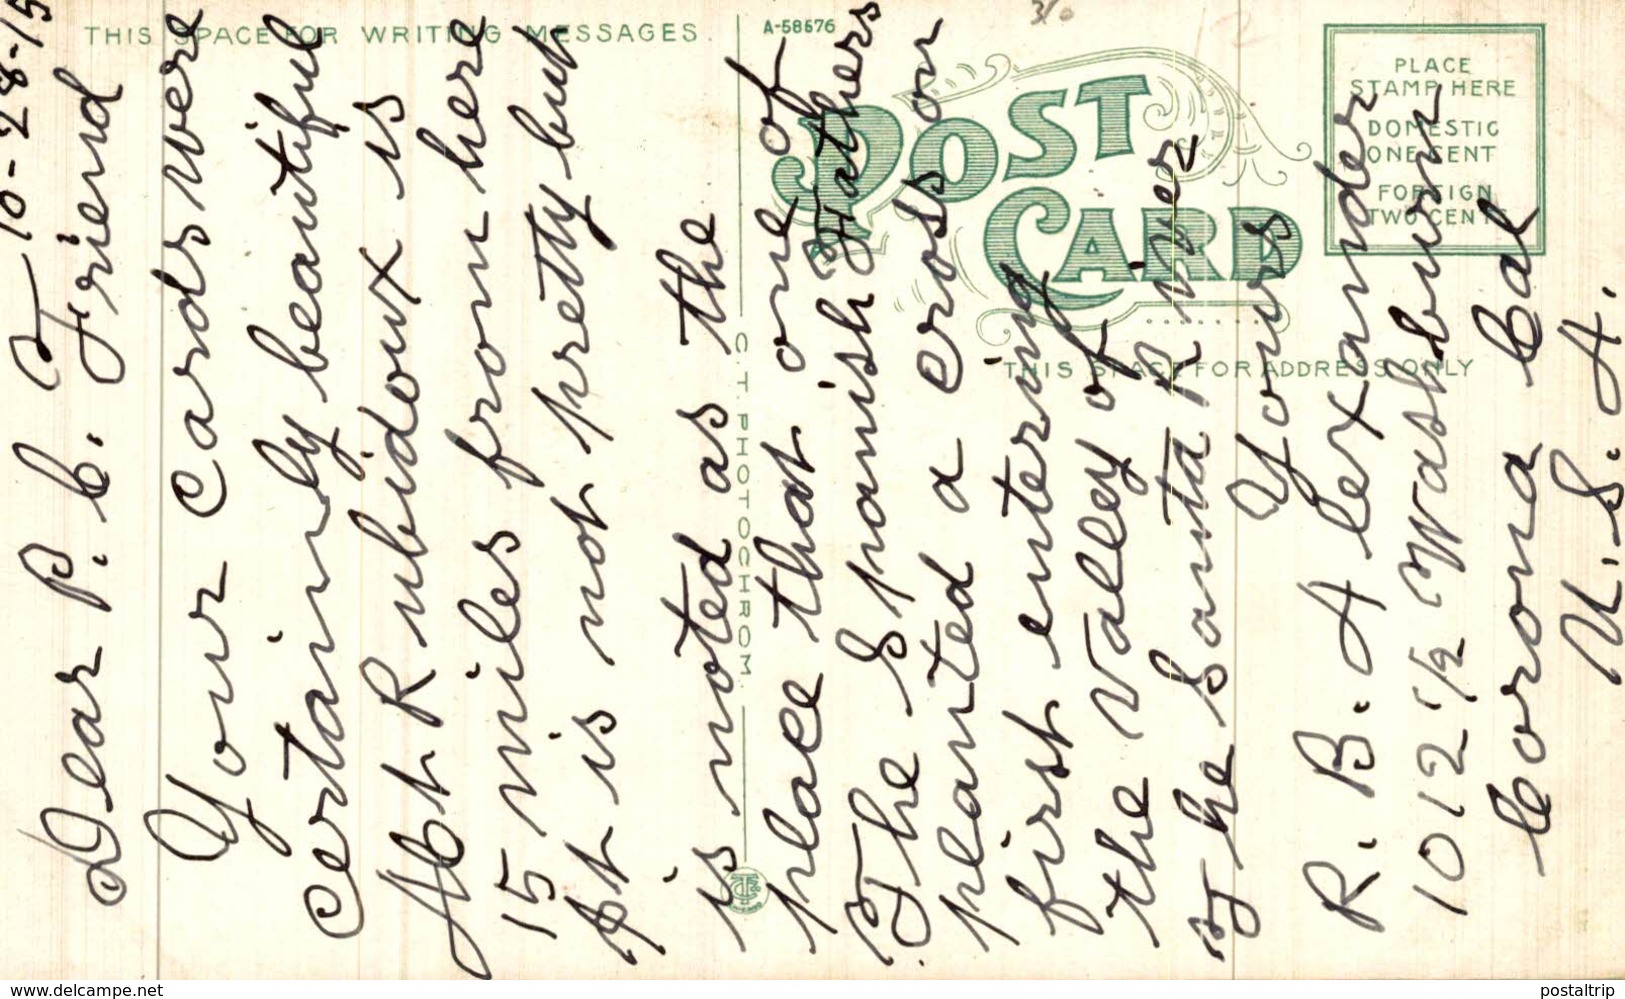 10-28-15
Dear P. C. Friend
Your cards were
certainly beautiful
Mt Rubidoux is
15 miles from here
It is not pretty but
is noted as the
place that one of
The Spanish Fathers
planted a cross on
first entering
the Valley of
The Santa River
Yours
R. B. Alexander
1012 1/2 Washburn
Corona Cal
U. S. A.
THIS SPACE FOR WRITING MESSAGES
A-58676
POST
CARD
PLACE
STAMP HERE
DOMESTIC
ONE CENT
FOREIGN
TWO CENTS
THIS SPACE FOR ADDRESS ONLY
C. T. PHOTOCHROM
www.delcampe.net
postaltrip